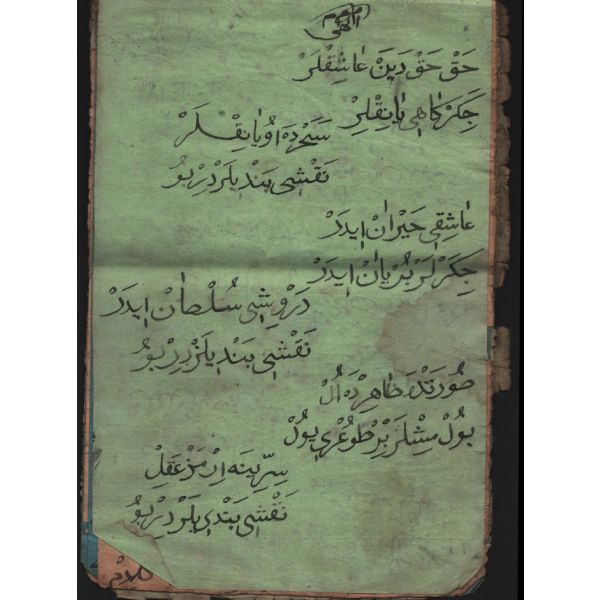 الهی
حَقْ حَقْ دَيَنْ عَاشِقْلَرْ
جَكَرْ كَاهِی يَانِقْلِرْ
سَحَرْدَه اُويَانِقْلَرْ
نَقْشِی بَنْدِيلَرْدِرْ بُو
عَاشِقِی حَيْرَانْ اِيدَرْ
جِكَرْلَرْ بُرْيَانْ اِيدَرْ
دَرْوِشِی سُلْطَانْ اِيدَرْ
نَقْشِی بَنْدِيلَرْدِرْ بُو
صُورَتْدَه ظَاهِرْدَه اُلْ
بُولْمِشْلَرْ بِرْ طُوغْرِی يُولْ
سِرِّينَه اِرْمَزْ عَقِلْ
نَقْشِی بَنْدِيلَرْدِرْ بُو